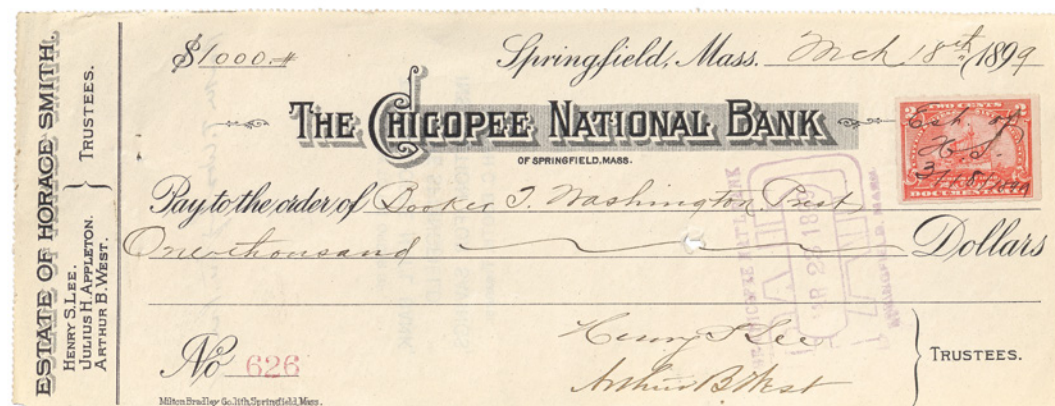 ESTATE OF HORACE SMITH.
HENRY S. LEE.
JULIUS H. APPLETON.
ARTHUR B. WEST.
TRUSTEES.
$1000.# Springfield, Mass. Mch 18th 1899
THE CHICOPEE NATIONAL BANK
OF SPRINGFIELD, MASS.
TWO CENTS
2 2
Est. of
H.S.
3/18/1899
DOCUMENTARY
Pay to the order of Booker T. Washington, Prest
One thousand Dollars
PAID
Henry S Lee
Arthur B. West
TRUSTEES.
No 626
Milton Bradley Co. lith. Springfield, Mass.